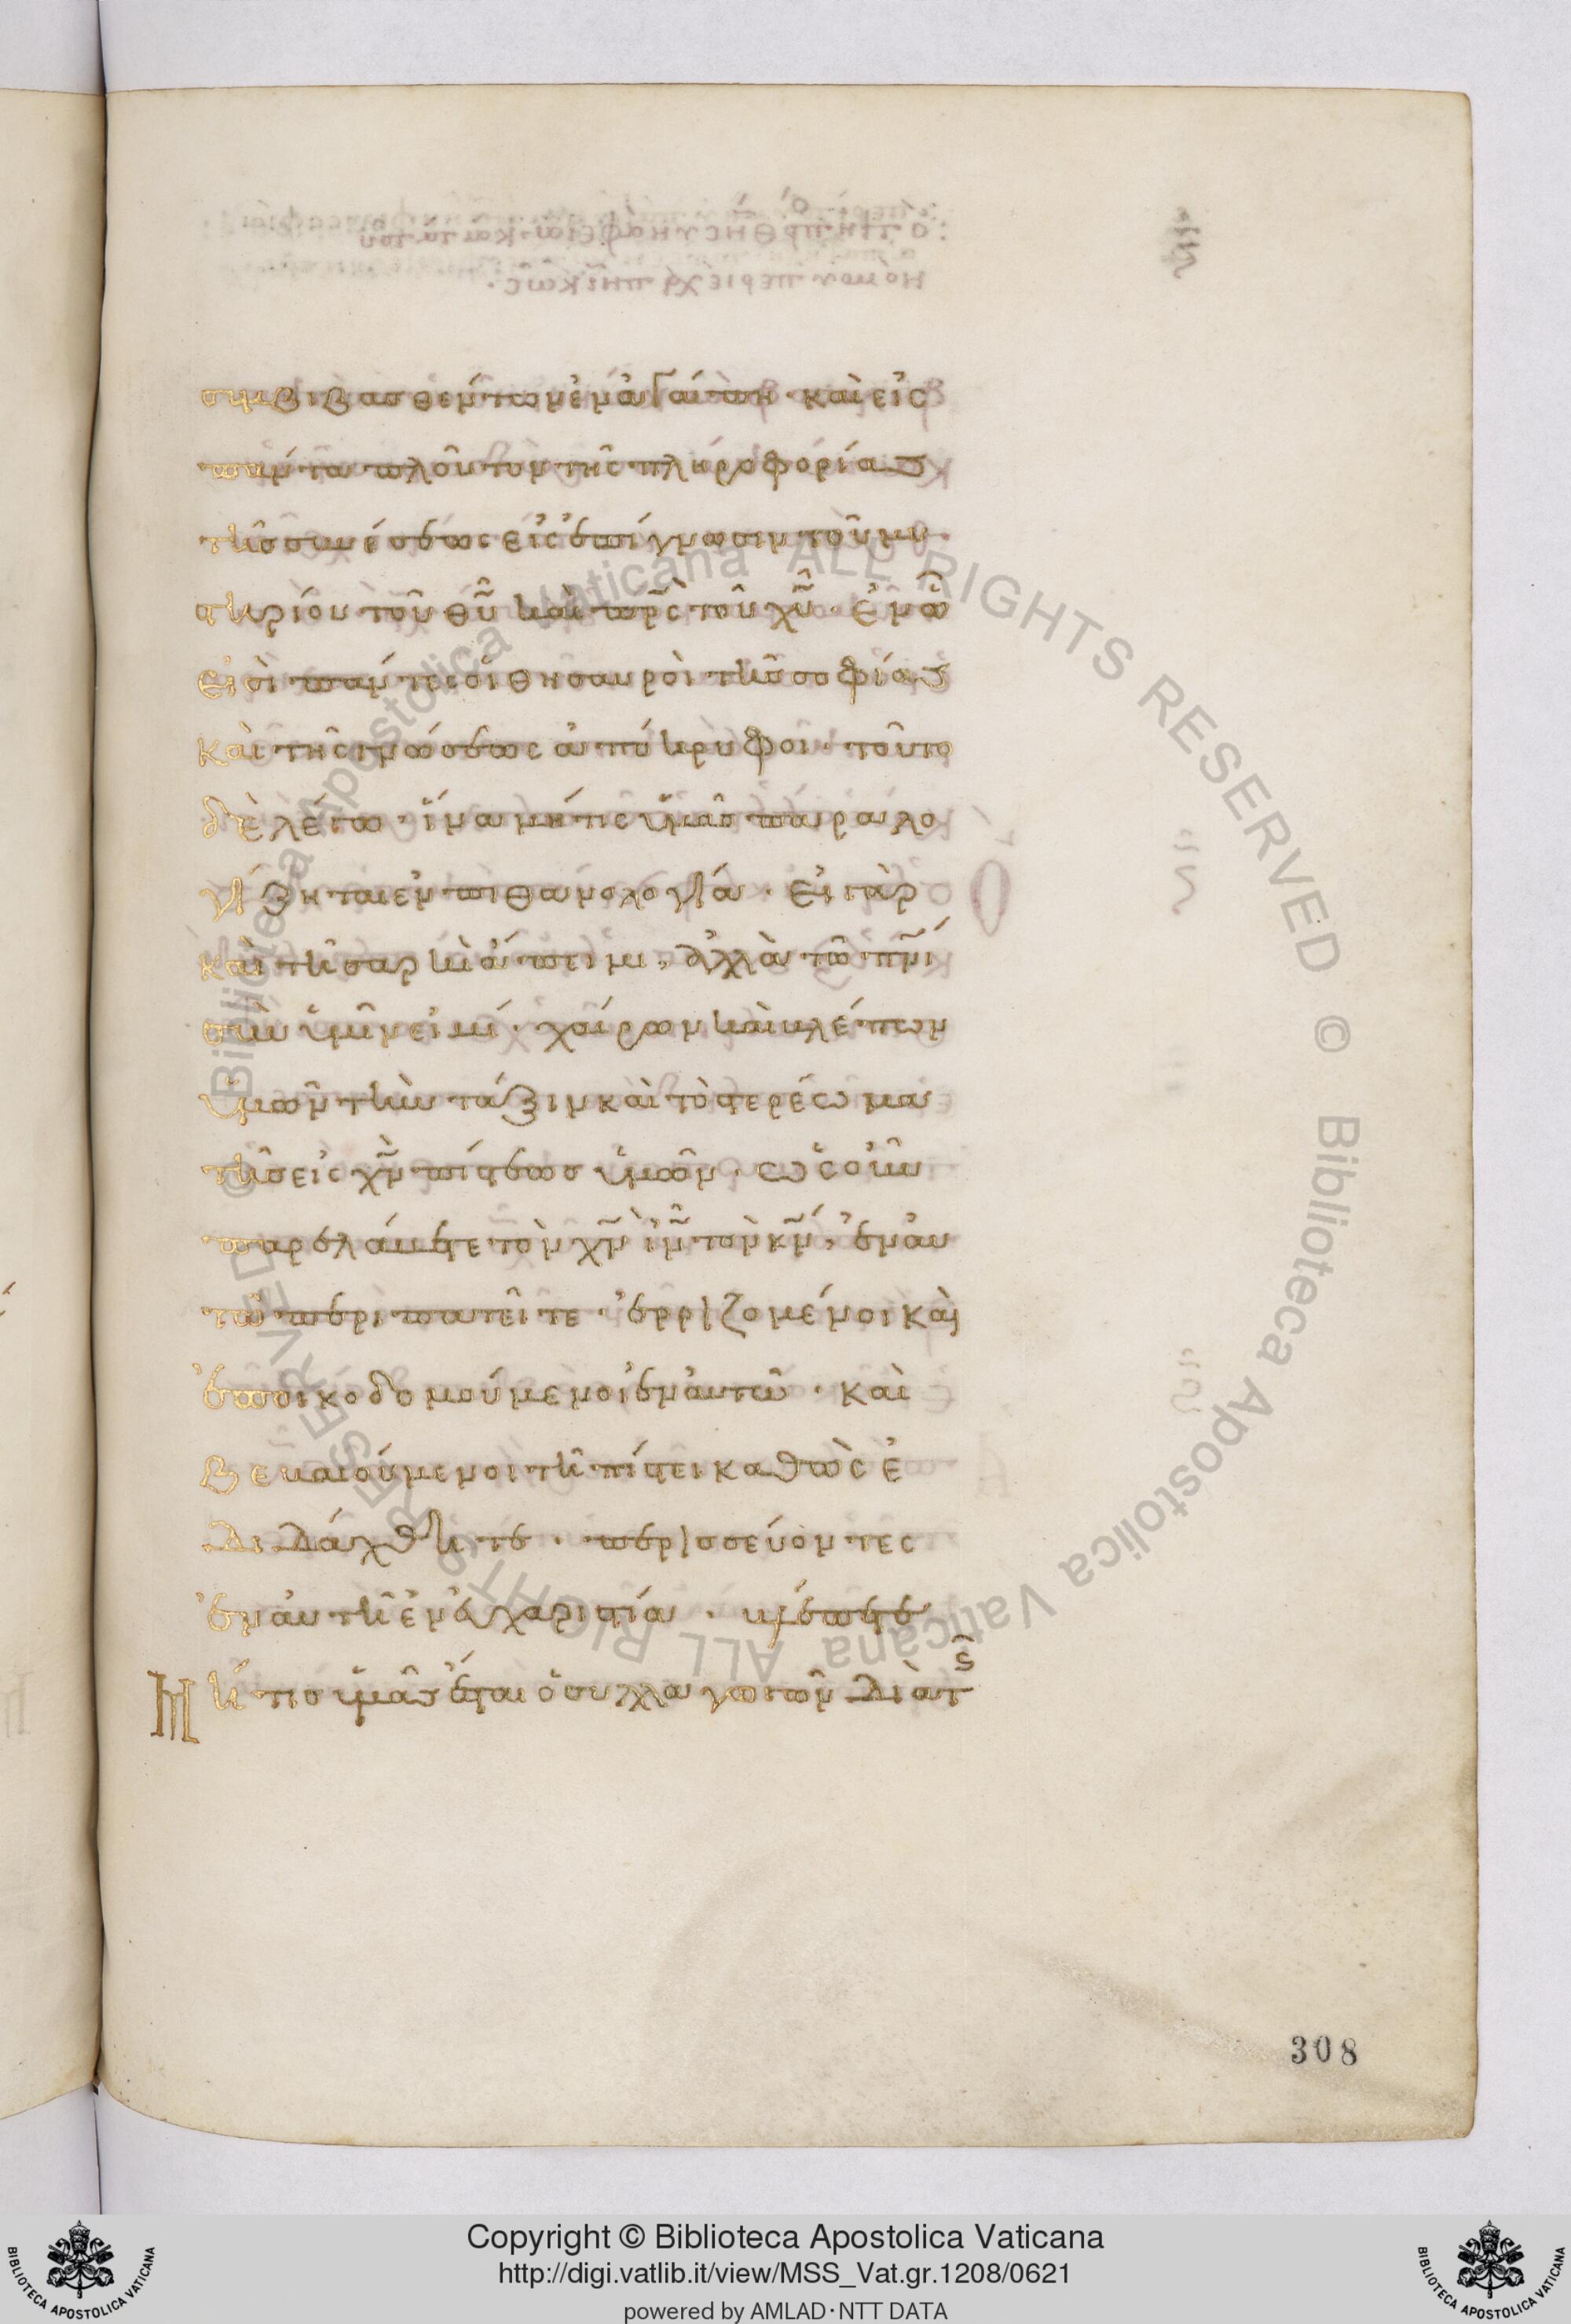 συμβιβασθέντων ἐν ἀγάπη· καὶ εἰς
πάντα πλοῦτον τῆς πληροφορίας
τῆς συνέσεως εἰς ἐπίγνωσιν τοῦ μυ
στηρίου τοῦ θῦ καὶ πρς τοῦ χῦ· ἐν ὧ
εἰσὶ πάντες οἱ θησαυροὶ τῆς σοφίας
καὶ τῆς γνώσεως ἀπόκρυφοι· τοῦτο
δὲ λέγω· ἵνα μήτις ὑμᾶς παραλο
γίζηται ἐν πιθανολογία· εἰ γὰρ
καὶ τῆ σαρκὶ ἄπειμι, ἀλλὰ τῶ πνι
σὺν ὑμῖν εἰμί· χαίρων καὶ βλέπων
ὑμῶν τὴν τάξιν καὶ τὸ στερέωμα
τῆς εἰς χν πίστεως ὑμῶν· ὡς οὖν
παρελάβετε τὸν χν ιν τὸν κν, ἐν αυ
τῶ περιπατεῖτε· ἐρριζομένοι καὶ
ἐποικοδομούμενοι ἐν αὐτῶ· καὶ
βεβαιούμενοι τῆ πίστει καθὼς ἐ
διδάχθητε· περισσεύοντες
ἐν αὐτῆ ἐν εὐχαριστία· βλέπετε
Μή τις ὑμᾶς ἔσται ὁ συλαγωγῶν διὰ τς
308
Copyright © Biblioteca Apostolica Vaticana
http://digi.vatlib.it/view/MSS_Vat.gr.1208/0621
powered by AMLAD·NTT DATA
© Biblioteca Apostolica Vaticana ALL RIGHTS RESERVED © Biblioteca Apostolica Vaticana ALL RIGHTS RESERVED
BIBLIOTECA APOSTOLICA VATICANA
BIBLIOTECA APOSTOLICA VATICANA